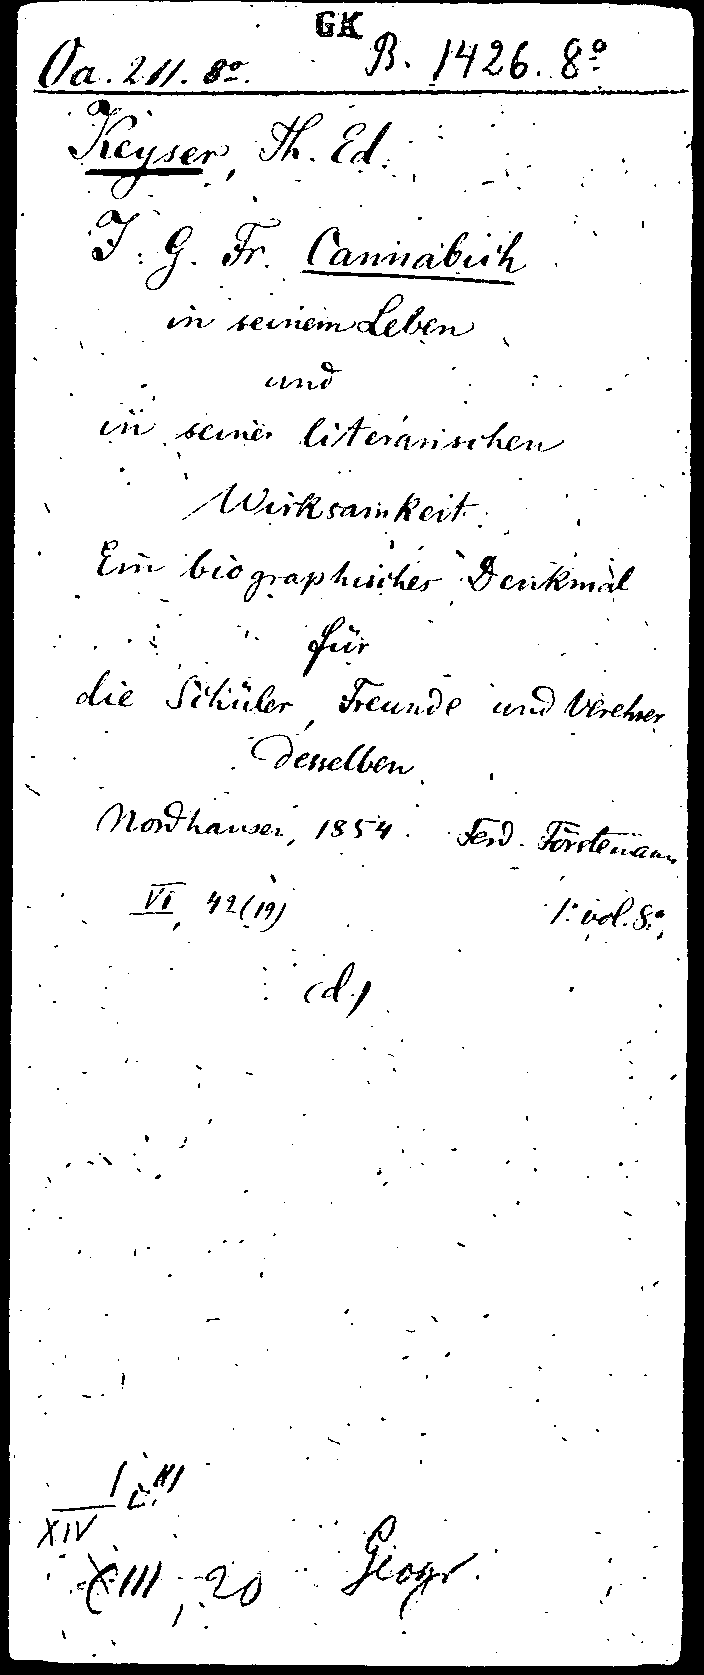 GK
Oa. 211. 8º. B. 1426. 8º
Keyser, Th. Ed.
J. G. Fr. Cannabich
in seinem Leben
und
in seiner literarischen
Wirksamkeit.
Ein biographisches Denkmal
für
die Schüler, Freunde und Verehrer
desselben
Nordhausen, 1854. Ferd. Förstemann
VI, 42 (19) 1. vol. 8º,
(d.)
I
XIV
XIII, 20 Geogr.